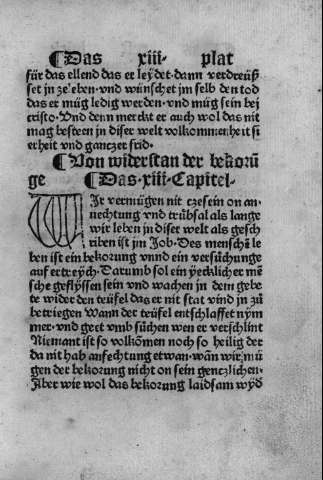 ¶Das xiii· plat
für das ellend das er leydet·dann verdreüß
set jn ze·eben·vnd wünschet jm selb den tod
das er müg ledig werden·vnd müg sein bei
cristo·Vnd denn merckt er auch wol das nit
mag besteen in diser welt volkommenheit si
cherheit vnd gantzer frid·
¶Von widerstan der bekorū
ge ¶Das·xiii·Capitel·
Wir vermügen nit ze sein on an
uechtung vnd trübsal als lange
wir leben in diser welt als gesch
riben ist jm Job·Des menschē le
ben ist ein bekorung vnnd ein versüchunge
auf ertreych·Darumb sol ein yecklicher mē
sche geflyssen sein vnd wachen jn dem gebe
te wider den teüfel das er nit stat vind jn zů
betriegen Wann der teüfel entschlaffet nym
mer·vnd geet vmb süchen wen er verschlint
Niemant ist so volkōmen noch so heilig der
da nit hab anfechtung etwan·wān wir mü
gen der bekorung nicht on sein gentzlichen·
Aber wie wol das bekorung laidsam wyd